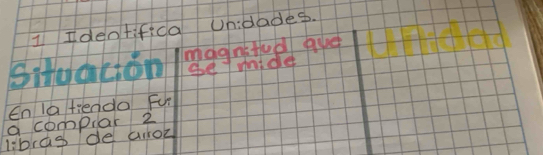 1 Identifica Unidades.
Situación
magnitud que
se mide
Unidad
En la tienda Fui
a comprar 2
libras de arroz